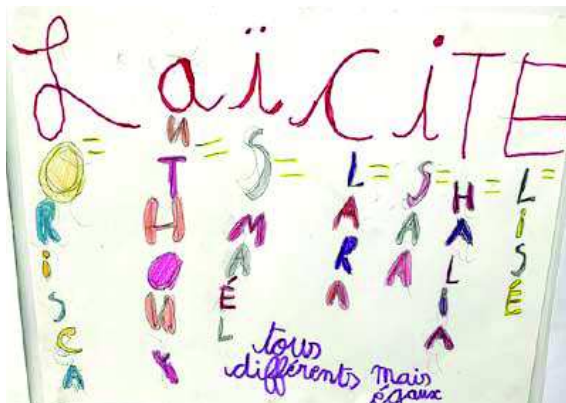 LaïCiTE
ORiSCA = NTHONY = SMAÉL = LARA = SAA = HALiA = LiSÉ
tous
différents mais
égaux